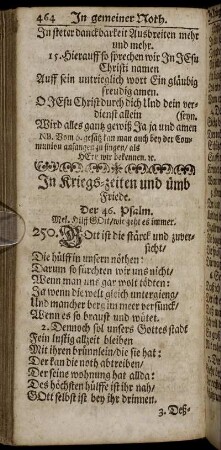 464 In gemeiner Noth.
In steter danckbarkeit Ausbreiten mehr
und mehr.
15. Hierauff so sprechen wir In JEsu
Christi namen
Auff sein untrieglich wort Ein gläubig
freudig amen.
O JEsu Christ durch dich Und dein ver-
dienst allein (seyn.
Wird alles gantz gewiß Ja ja und amen
NB. Vom 9. gesätz kan man auch bey der Com-
munion anfangen zu singen/ als
HErr wir bekennen. ꝛc.
In Kriegs-zeiten und ümb
Friede.
Der 46. Psalm.
Mel. Hilff GOtt/ wie geht es immer.
250. GOtt ist die stärck und zuver-
sicht/
Die hülff in unsern nöthen:
Darum so fürchten wir uns nicht/
Wenn man uns gar wolt tödten:
Ja wenn die welt gleich untergieng/
Und mancher berg im meer versünck/
Wenn es so braust und wütet.
2. Dennoch sol unsers Gottes stadt
Fein lustig allzeit bleiben
Mit ihren brünnlein/ die sie hat:
Der kan die noth abtreiben/
Der seine wohnung hat allda:
Des höchsten hülffe ist ihr nah/
GOtt selbst ist bey ihr drinnen.
3. Deß-